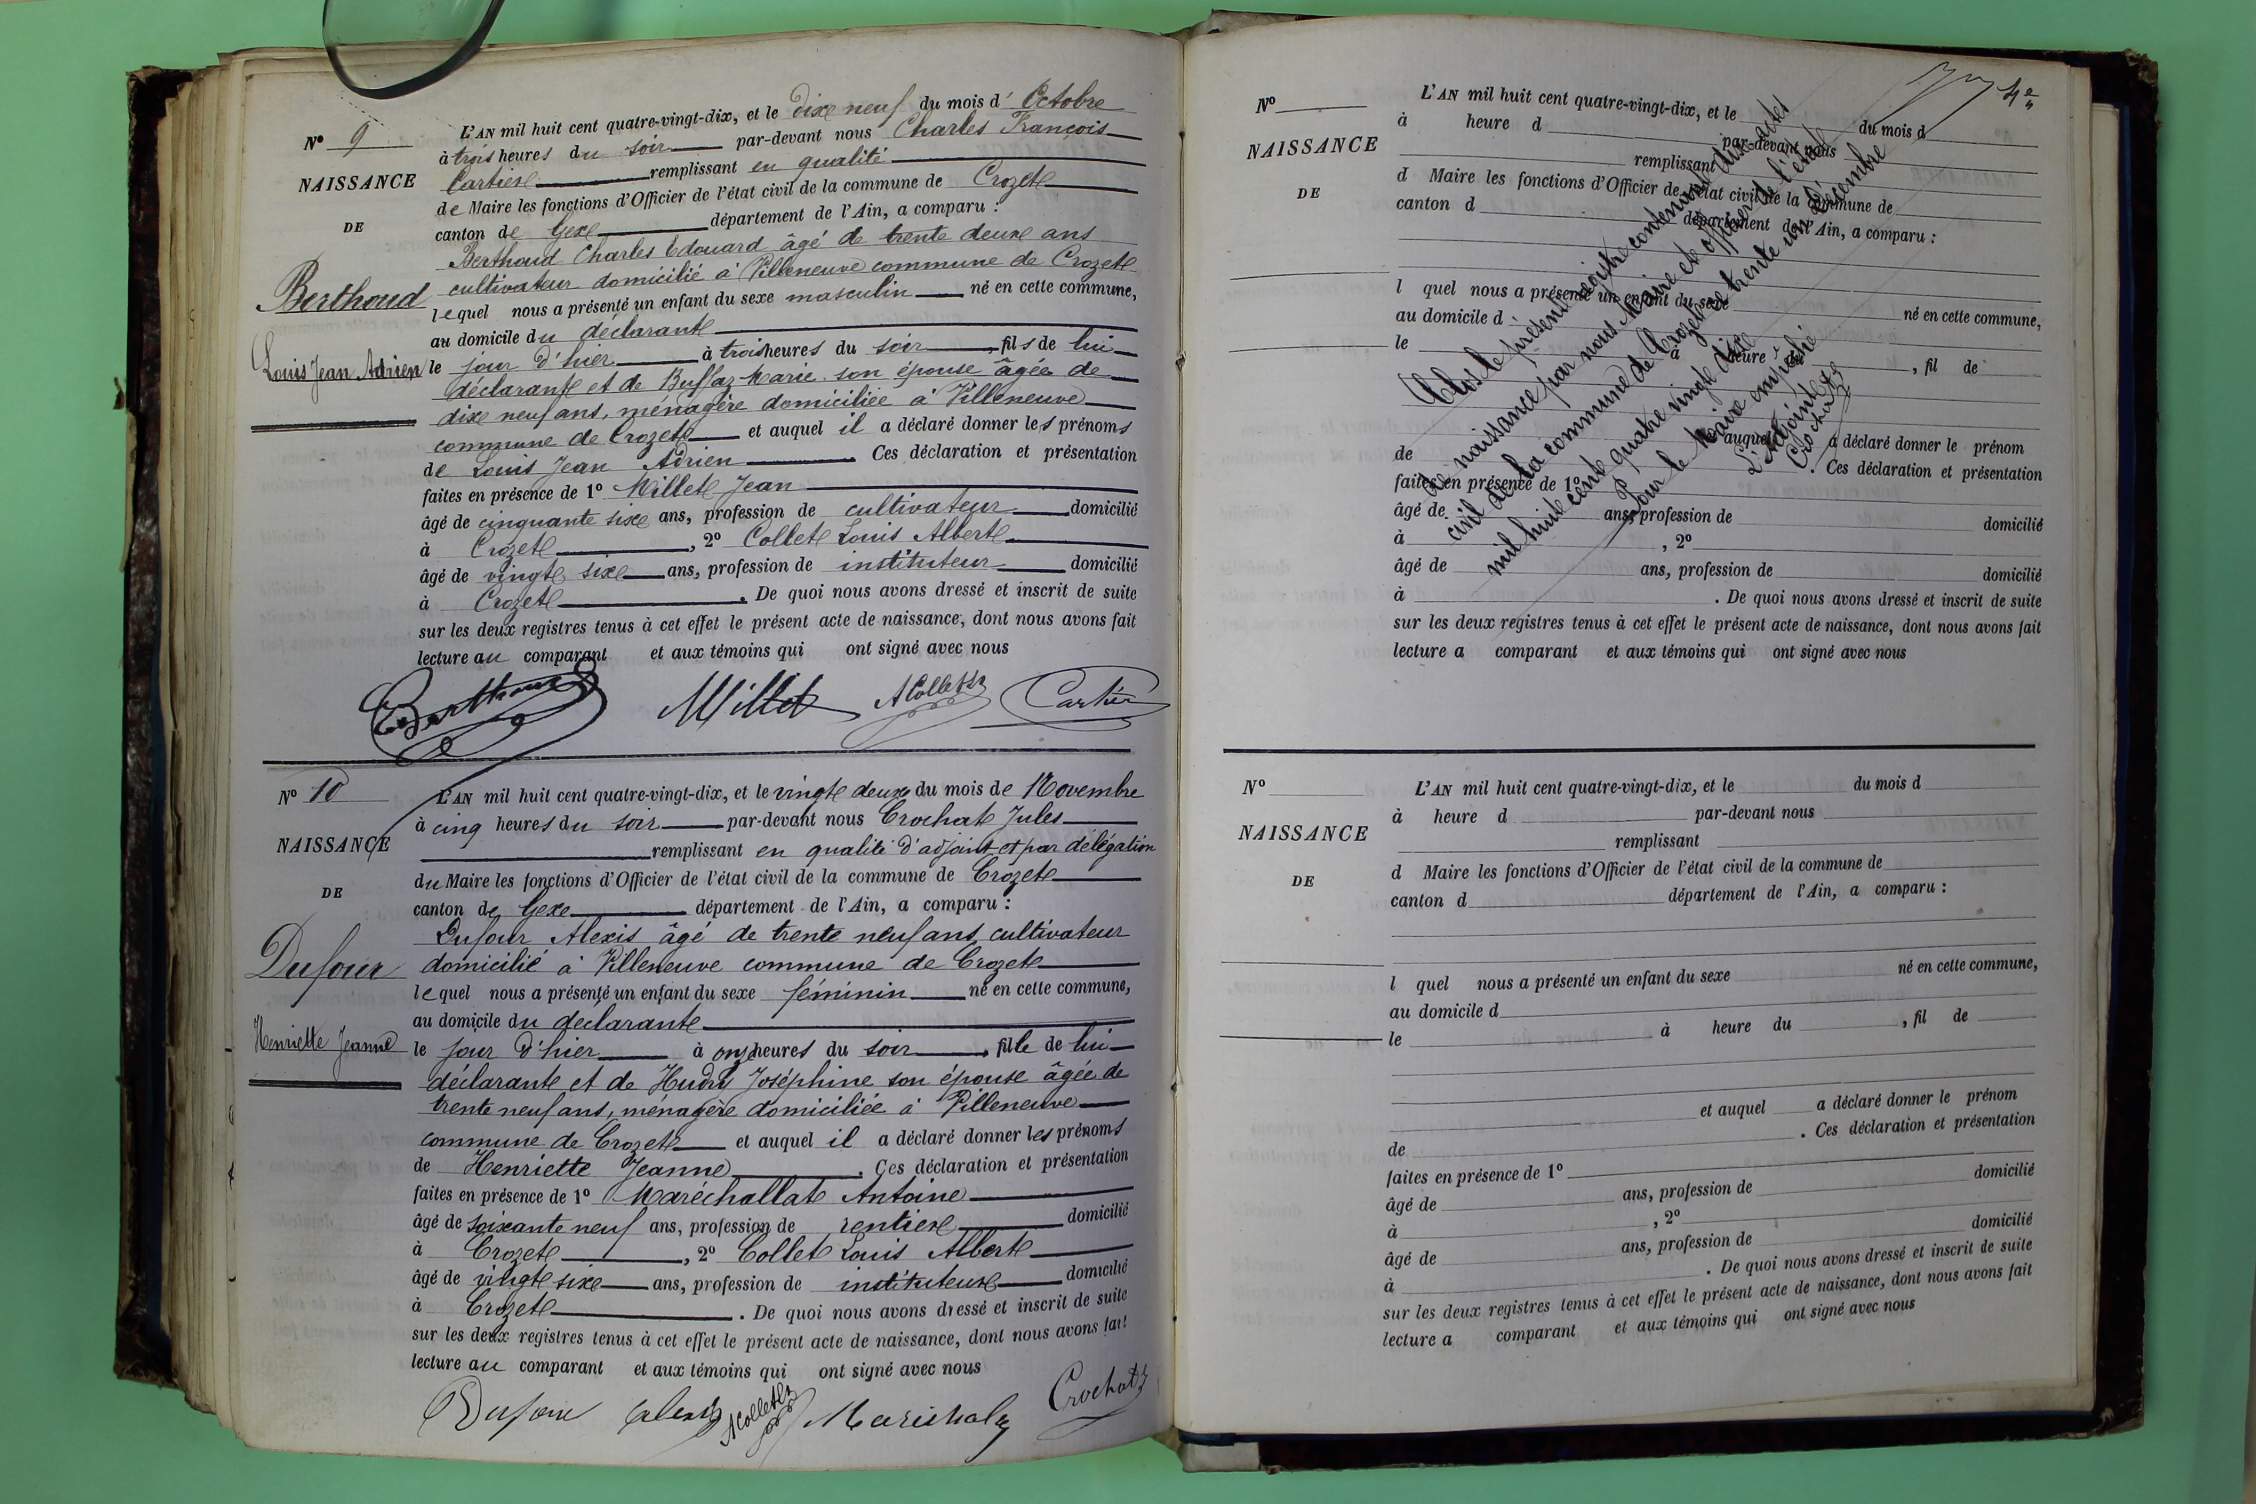 L'AN mil huit cent quatre-vingt-dix, et le dixe neuf du mois d' Octobre
N° 9
à trois heures du soir par-devant nous Charles François
NAISSANCE
Cartiere remplissant en qualité
de Maire les fonctions d'Officier de l'état civil de la commune de Crozete
DE
canton de Gexe département de l'Ain, a comparu :
Berthoud Charles Edouard âgé de trente deuxe ans
cultivateur domicilié à Villeneuve commune de Crozete
Berthoud
lequel nous a présenté un enfant du sexe masculin né en cette commune,
au domicile du déclarante
Louis Jean Adrien
le jour d'hier à trois heures du soir, fils de lui
déclarante et de Buffaz Marie son épouse âgée de
dixe neuf ans, ménagère domiciliée à Villeneuve
commune de Crozete et auquel il a déclaré donner les prénoms
de Louis Jean Adrien. Ces déclaration et présentation
faites en présence de 1° Millete Jean
âgé de cinquante sixe ans, profession de cultivateur domicilié
à Crozete, 2° Collete Louis Alberte
âgé de vingte sixe ans, profession de instituteur domicilié
à Crozete. De quoi nous avons dressé et inscrit de suite
sur les deux registres tenus à cet effet le présent acte de naissance, dont nous avons fait
lecture au comparant et aux témoins qui ont signé avec nous
Berthoud Millet A Collet Cartier
N° 10
L'AN mil huit cent quatre-vingt-dix, et le vingte deuxe du mois de Novembre
à cinq heures du soir par-devant nous Crochat Jules
NAISSANCE
remplissant en qualité d'adjoint et par délégation
du Maire les fonctions d'Officier de l'état civil de la commune de Crozete
DE
canton de Gexe département de l'Ain, a comparu :
Dufour Alexis âgé de trente neuf ans cultivateur
Dufour
domicilié à Villeneuve commune de Crozete
lequel nous a présenté un enfant du sexe féminin né en cette commune,
au domicile du déclarante
Henriette Jeanne
le jour d'hier à onze heures du soir, fille de lui
déclarante et de Hudry Joséphine son épouse âgée de
trente neuf ans, ménagère domiciliée à Villeneuve
commune de Crozete et auquel il a déclaré donner les prénoms
de Henriette Jeanne. Ces déclaration et présentation
faites en présence de 1° Maréchallate Antoine
âgé de soixante neuf ans, profession de rentiere domicilié
à Crozete, 2° Collet Louis Alberte
âgé de vingte sixe ans, profession de instituteure domicilié
à Crozete. De quoi nous avons dressé et inscrit de suite
sur les deux registres tenus à cet effet le présent acte de naissance, dont nous avons fait
lecture au comparant et aux témoins qui ont signé avec nous
Dufour alexis A Collet Marichala Crochat
4e
N°
L'AN mil huit cent quatre-vingt-dix, et le du mois d
à heure d par-devant nous
NAISSANCE
remplissant
d Maire les fonctions d'Officier de l'état civil de la commune de
DE
canton d département de l'Ain, a comparu :
l quel nous a présenté un enfant du sexe né en cette commune,
au domicile d
le à heure du, fil de
et auquel a déclaré donner le prénom
de. Ces déclaration et présentation
faites en présence de 1°
âgé de ans, profession de domicilié
à, 2°
âgé de ans, profession de domicilié
à. De quoi nous avons dressé et inscrit de suite
sur les deux registres tenus à cet effet le présent acte de naissance, dont nous avons fait
lecture a comparant et aux témoins qui ont signé avec nous
Clos le présent registre contenant dix actes
de naissance par nous Maire et officier de l'état
civil de la commune de Crozet le trente un Décembre
mil huit cent quatre vingt dixe
Pour le Maire empêché
L'Adjoint
Crochat
N°
L'AN mil huit cent quatre-vingt-dix, et le du mois d
à heure d par-devant nous
NAISSANCE
remplissant
d Maire les fonctions d'Officier de l'état civil de la commune de
DE
canton d département de l'Ain, a comparu :
l quel nous a présenté un enfant du sexe né en cette commune,
au domicile d
le à heure du, fil de
et auquel a déclaré donner le prénom
de. Ces déclaration et présentation
faites en présence de 1°
âgé de ans, profession de domicilié
à, 2°
âgé de ans, profession de domicilié
à. De quoi nous avons dressé et inscrit de suite
sur les deux registres tenus à cet effet le présent acte de naissance, dont nous avons fait
lecture a comparant et aux témoins qui ont signé avec nous